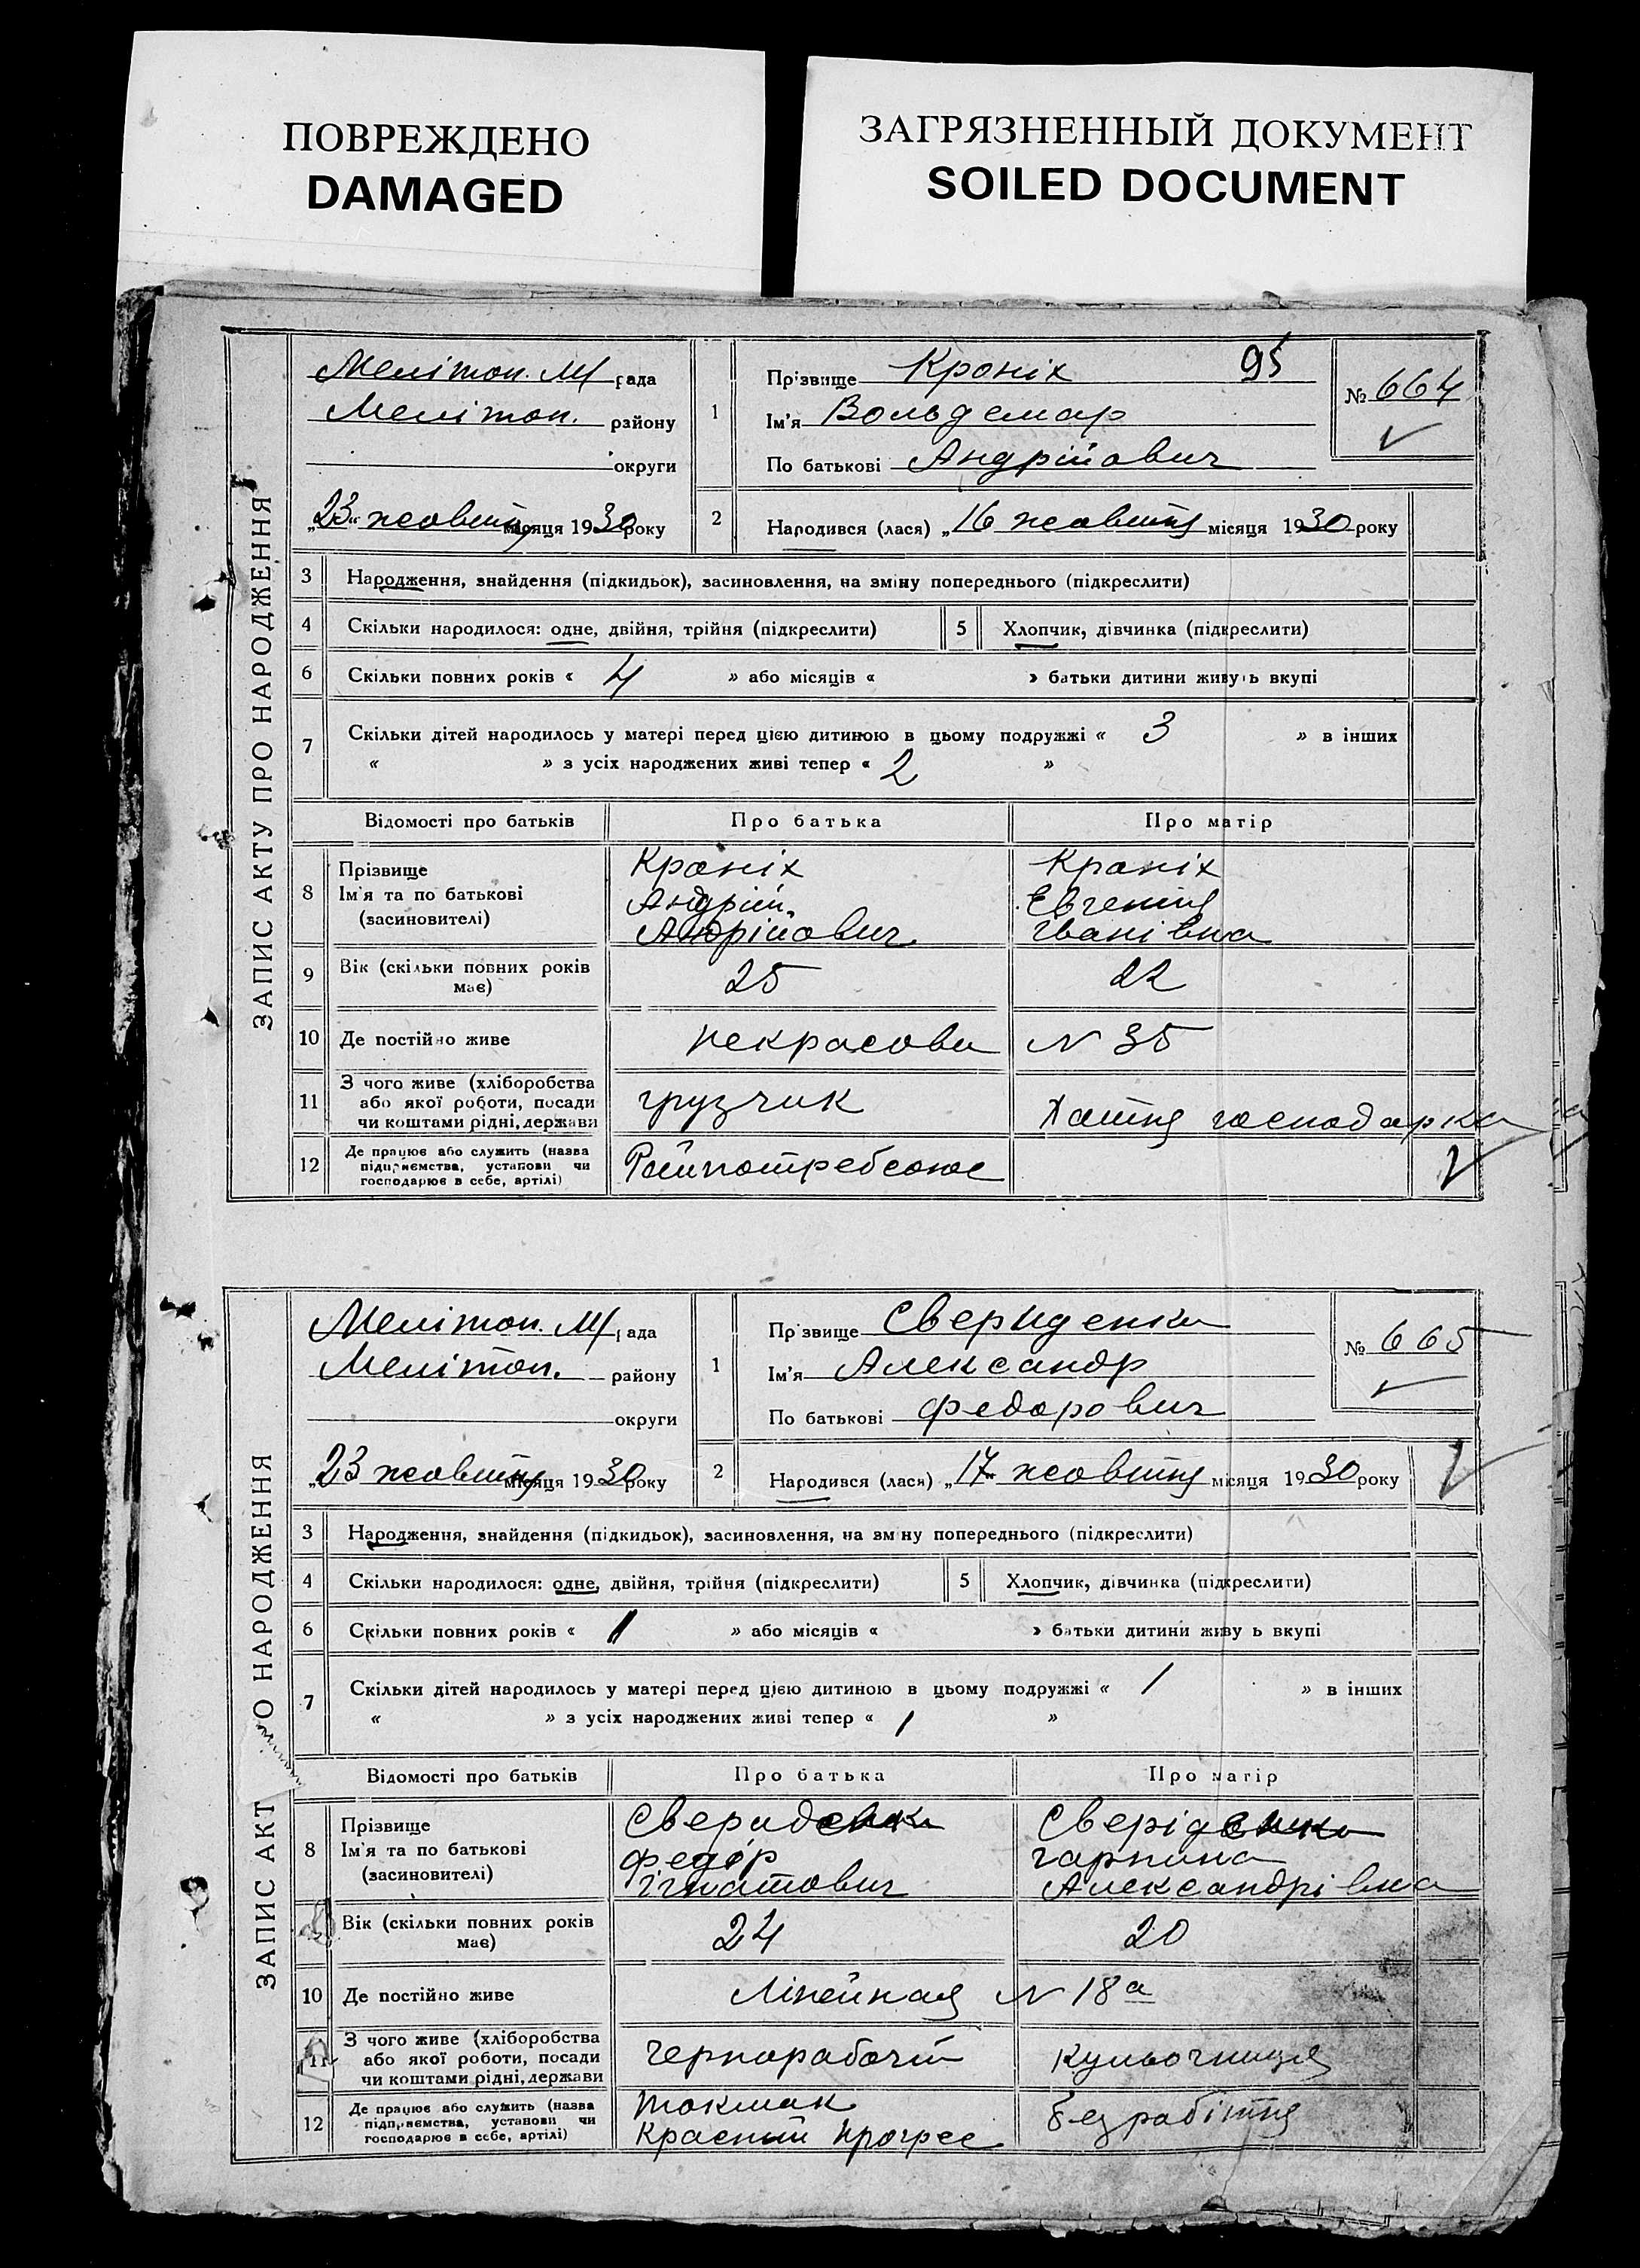 ПОВРЕЖДЕНО
DAMAGED
ЗАГРЯЗНЕННЫЙ ДОКУМЕНТ
SOILED DOCUMENT
ЗАПИС АКТУ ПРО НАРОДЖЕННЯ
Мелітоп. М/рада
Мелітоп. району
округи
„23“ жовтня місяця 1930 року
1
Прізвище Кроніх 95
Ім'я Вольдемар
По батькові Андрійович
№ 664
2
Народився (лася) „16 жовтня місяця 1930 року
3 Народження, знайдення (підкидьок), засиновлення, на зміну попереднього (підкреслити)
4 Скільки народилося: одне, двійня, трійня (підкреслити) 5 Хлопчик, дівчинка (підкреслити)
6 Скільки повних років « 4 » або місяців « » батьки дитини живуть вкупі
7 Скільки дітей народилось у матері перед цією дитиною в цьому подружжі « 3 » в інших
« » з усіх народжених живі тепер « 2 »
Відомості про батьків Про батька Про матір
8 Прізвище Кроніх Кроніх
Ім'я та по батькові Андрій Евгенія
(засиновителі) Андрійович Іванівна
9 Вік (скільки повних років 25 22
має)
10 Де постійно живе Некрасова N 35
11 З чого живе (хліборобства
або якої роботи, посади грузчик Хатня господарка
чи коштами рідні, держави
12 Де працює або служить (назва
підприємства, установи чи Райпотребсоюс
господарює в себе, артілі)
ЗАПИС АКТ О НАРОДЖЕННЯ
Мелітоп. М/рада
Мелітоп. району
округи
„23 жовтня місяця 1930 року
1
Прізвище Свериденко
Ім'я Александр
По батькові Федорович
№ 665
2
Народився (лася) „17 жовтня місяця 1930 року
3 Народження, знайдення (підкидьок), засиновлення, на зміну попереднього (підкреслити)
4 Скільки народилося: одне, двійня, трійня (підкреслити) 5 Хлопчик, дівчинка (підкреслити)
6 Скільки повних років « 1 » або місяців « » батьки дитини живу ь вкупі
7 Скільки дітей народилось у матері перед цією дитиною в цьому подружжі « 1 » в інших
« » з усіх народжених живі тепер « 1 »
Відомості про батьків Про батька Про матір
8 Прізвище Свериденко Сверіденко
Ім'я та по батькові Федор Гарпина
(засиновителі) Ігнатович Александрівна
Вік (скільки повних років 24 20
має)
10 Де постійно живе Лінейная N 18а
11 З чого живе (хліборобства
або якої роботи, посади Чернорабочий Кульочниця
чи коштами рідні, держави
12 Де працює або служить (назва Токмак
підприємства, установи чи Безрабітня
господарює в себе, артілі) Красний Прогрес